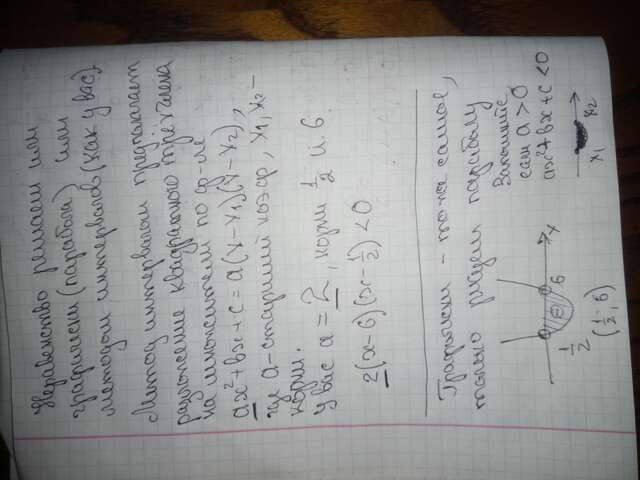 Неравенство решаем или
графически (парабола) или
методом интервалов (как у вас).
Метод интервалов предполагает
разложение квадратного трехчлена
на множители по ф-ле
ax²+bx+c=a(x-x₁)(x-x₂),
где a-старший коэф, x₁,x₂-
корни.
У вас a=2, корни 1/2 и 6
2(x-6)(x-1/2)<0
Графически - то же самое,
только рисуем параболу
Запомните,
если a>0
ax²+bx+c<0
x₁ x₂
1/2 6 x
(1/2; 6)